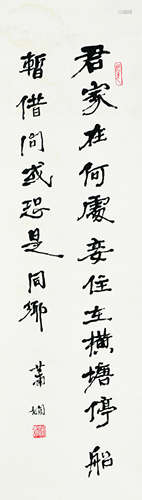 君家在何處妾住在橫塘停船
暫借問或恐是同鄉
蕭嫻